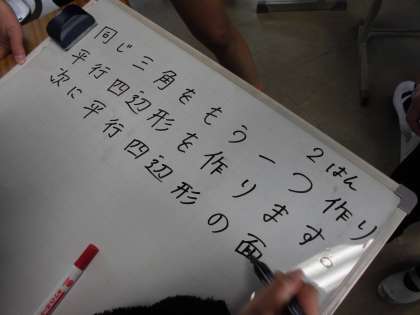 2はん
同じ三角をもう一つ作り
平行四辺形を作ります。
次に平行四辺形の面